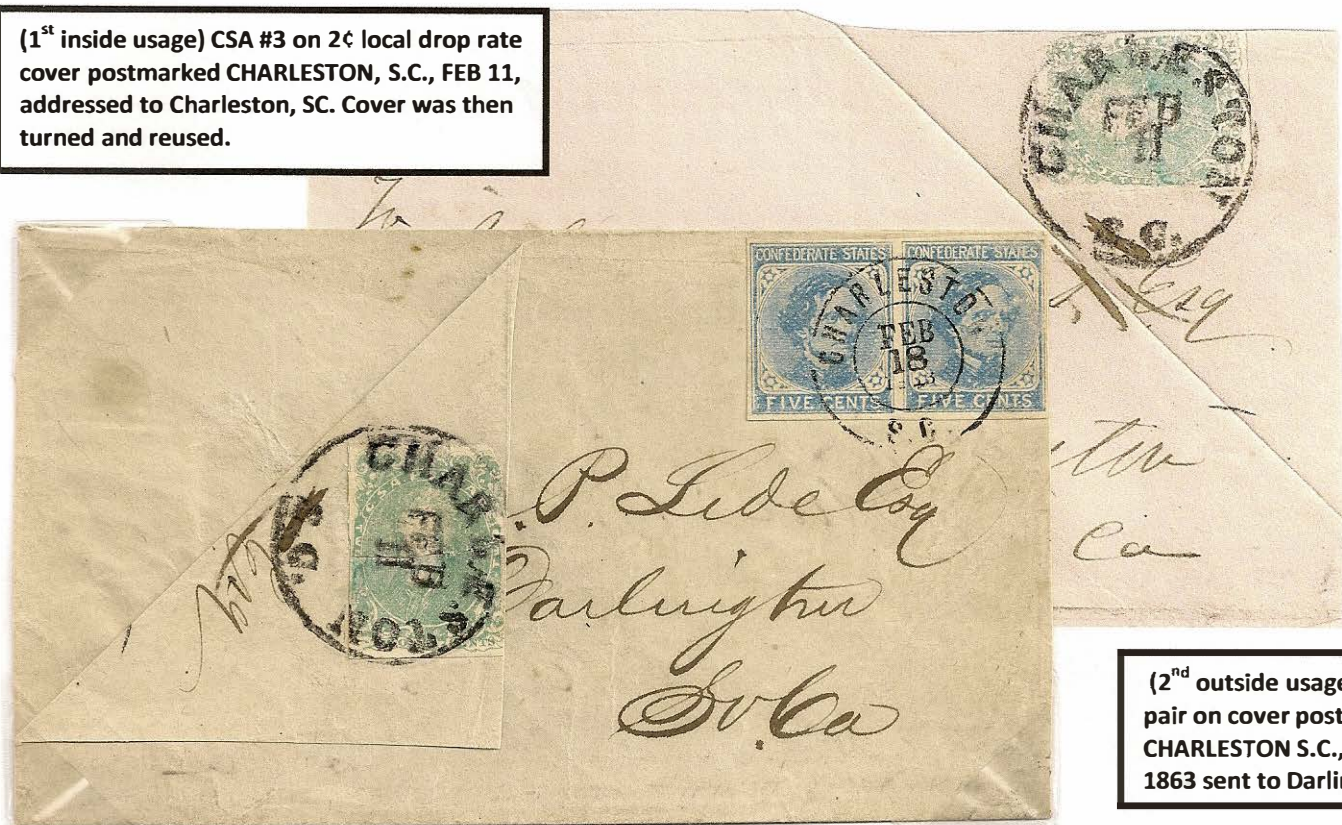 (1st inside usage) CSA #3 on 2¢ local drop rate
cover postmarked CHARLESTON, S.C., FEB 11,
addressed to Charleston, SC. Cover was then
turned and reused.
CHARLESTON
FEB
11
S.C.
To
Esq
ton
Ca
CONFEDERATE STATES CONFEDERATE STATES
FIVE CENTS FIVE CENTS
CHARLESTON
FEB
18
S.C.
CHARLESTON
FEB
11
S.C.
Esq
P. Lide Esq
Darlington
So. Ca
(2nd outside usage
pair on cover post
CHARLESTON S.C.,
1863 sent to Darli